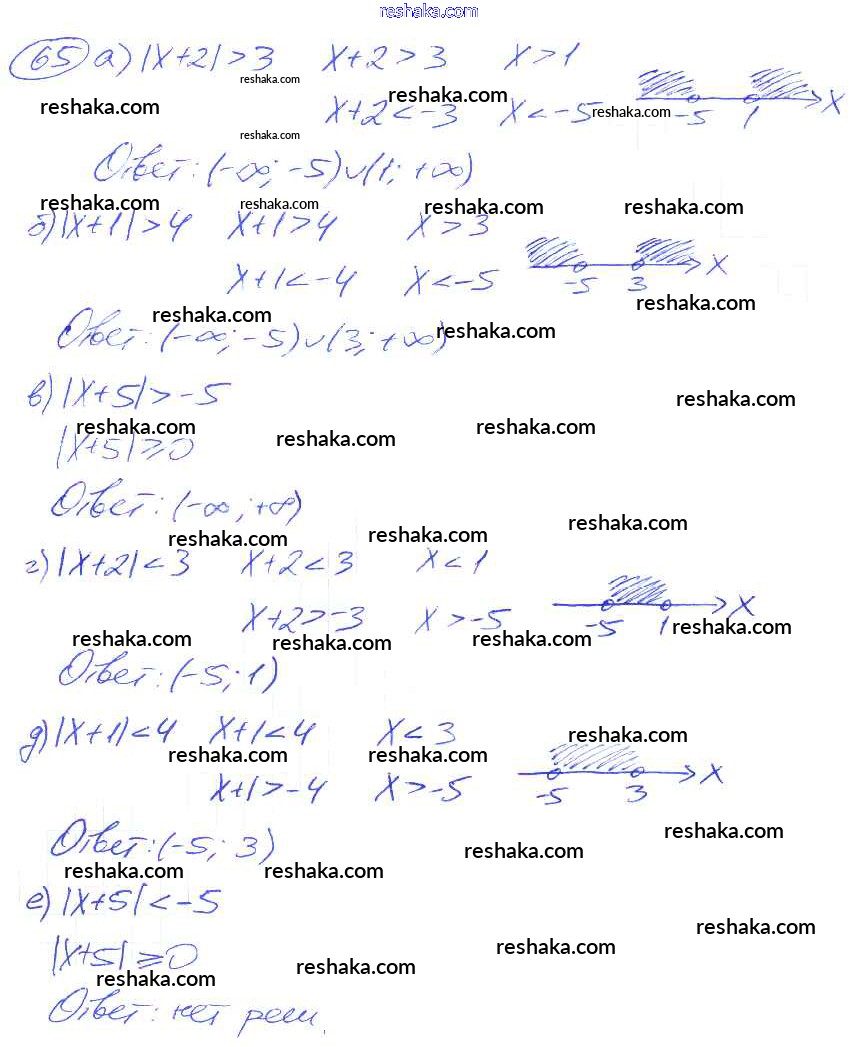 reshaka.com
65 а) |x+2|>3 x+2>3 x>1
reshaka.com
reshaka.com reshaka.com x+2<-3 x<-5 reshaka.com -5 1 x
reshaka.com
Ответ: (-∞; -5)∪(1; +∞)
reshaka.com reshaka.com reshaka.com reshaka.com
б) |x+1|>4 x+1>4 x>3
x+1<-4 x<-5 -5 3 x
reshaka.com reshaka.com
Ответ: (-∞; -5)∪(3; +∞) reshaka.com
в) |x+5|>-5 reshaka.com
reshaka.com reshaka.com reshaka.com
|x+5|≥0
Ответ: (-∞; +∞)
reshaka.com reshaka.com reshaka.com
г) |x+2|<3 x+2<3 x<1
x+2>-3 x>-5 -5 1 x
reshaka.com reshaka.com reshaka.com reshaka.com
Ответ: (-5; 1)
д) |x+1|<4 x+1<4 x<3 reshaka.com
reshaka.com reshaka.com
x+1>-4 x>-5 -5 3 x
Ответ: (-5; 3) reshaka.com reshaka.com
reshaka.com reshaka.com
е) |x+5|<-5
reshaka.com
|x+5|≥0 reshaka.com
reshaka.com reshaka.com
Ответ: нет реш.